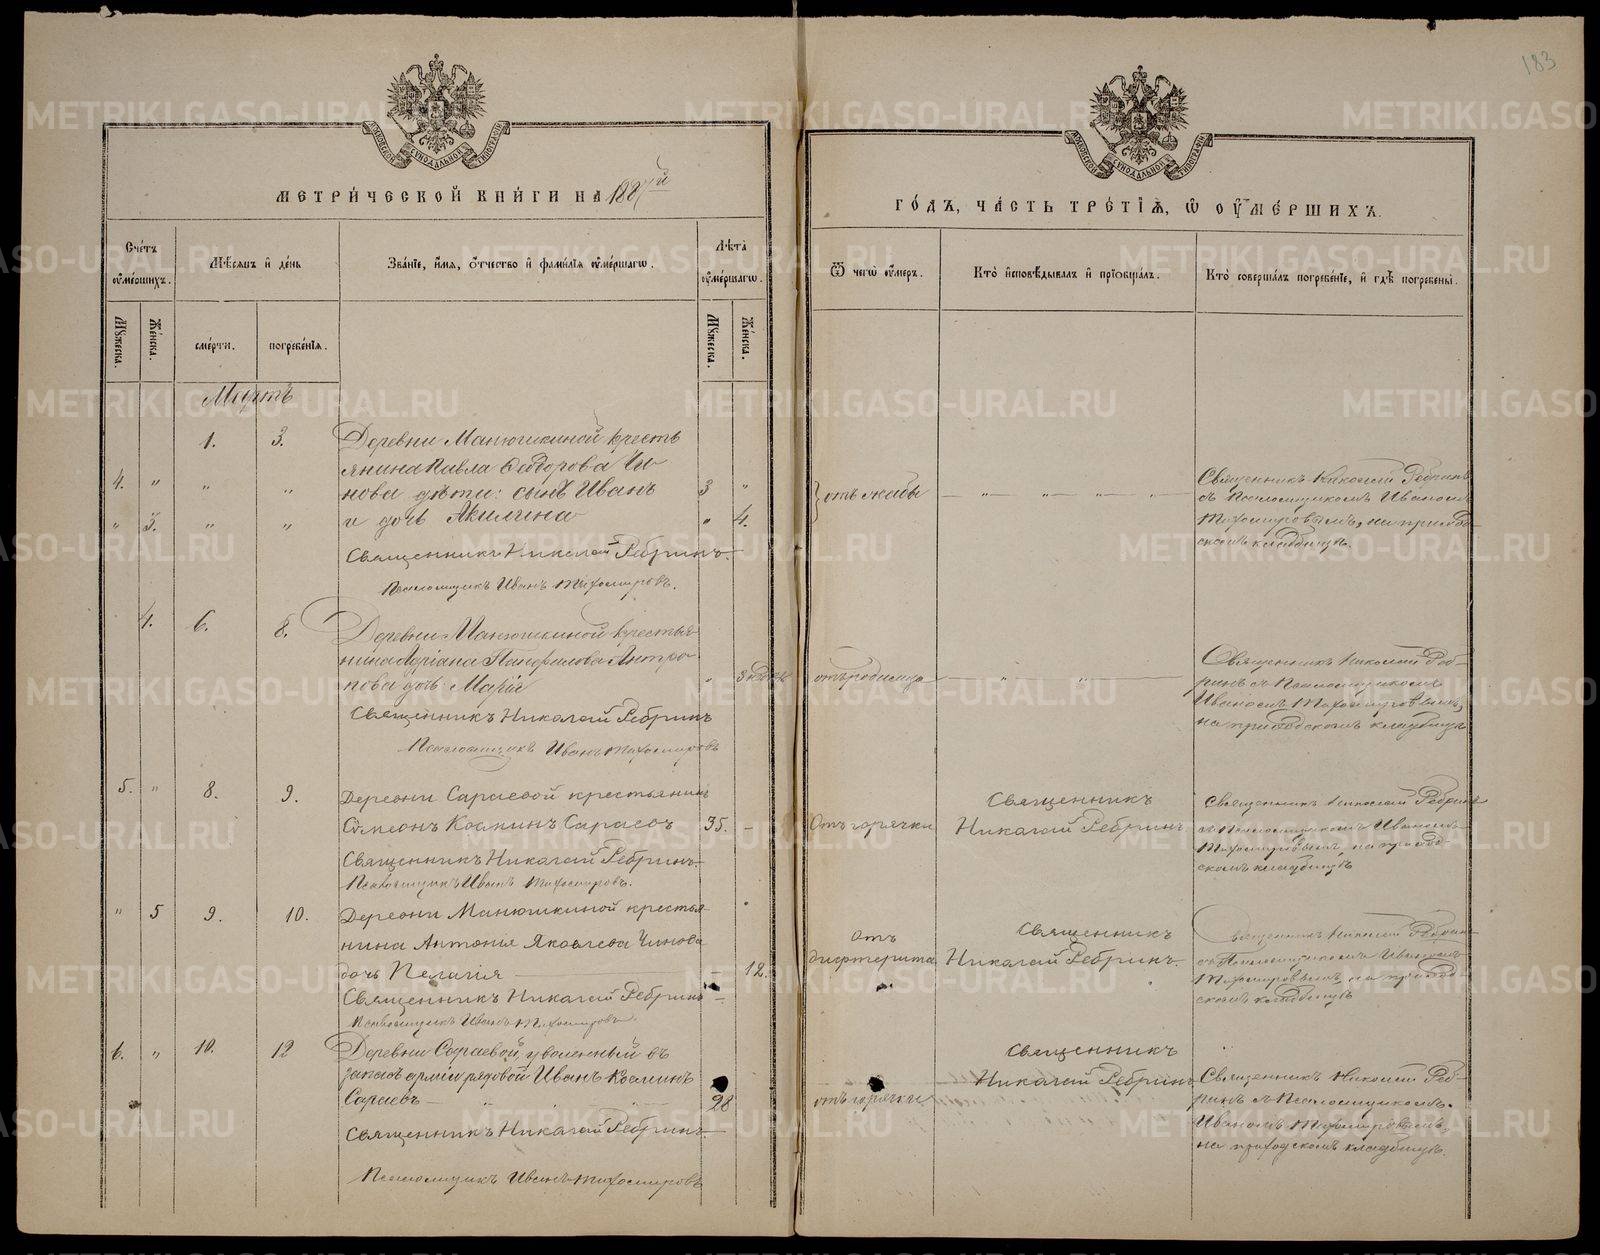 183
МЕТРИЧЕСКОЙ КНИГИ НА 1887й
ГОДЪ, ЧАСТЬ ТРЕТІЯ, Ѡ ОУМЕРШИХЪ.
Счетъ оумершихъ.
Мѣсяцъ и день
Званіе, имя, отчество и фамилія оумершагѡ.
Лѣта оумершагѡ.
Ѿ чегѡ оумеръ.
Кто исповѣдывалъ и пріобщалъ.
Кто совершалъ погребеніе, и гдѣ погребены.
Мужеска.
Женска.
смерти.
погребенія.
Мужеска.
Женска.
Мартъ
1. 3. Деревни Манюшкиной кресть
янина Павла Сидорова Чи
4. " " " нова дѣти: сынъ Иванъ 3 "
" 3. " " и дочь Акилина " 4.
отъ жабы
Священникъ Николай Ребринъ
съ Псаломщикомъ Иваномъ
Тихомировымъ, на приход
скомъ кладбищѣ.
Священникъ Николай Ребринъ.
Псаломщикъ Иванъ Тихомировъ.
4. 6. 8. Деревни Манюшкиной крестья
нина Адріана Панфилова Антро
нова дочь Марія "
отъ родимца
Священникъ Николай Реб-
ринъ съ Псаломщикомъ
Иваномъ Тихомировымъ,
на приходскомъ кладбищѣ
Священникъ Николай Ребринъ
Псаломщикъ Иванъ Тихомировъ
5. " 8. 9. Деревни Сараевой крестьянинъ
Симеонъ Косминъ Сараевъ 35. -
Отъ горячки
Священникъ
Николай Ребринъ.
Священникъ Николай Ребринъ
съ Псаломщикомъ Иваномъ
Тихомировымъ, на приход
скомъ кладбищѣ
Священникъ Николай Ребринъ.
Псаломщикъ Иванъ Тихомировъ.
" 5 9. 10. Деревни Манюшкиной крестья
нина Антонія Яковлева Чинова
дочь Пелагія 12.
Отъ
дифтерита
Священникъ
Николай Ребринъ
Священникъ Николай Ребринъ
съ Псаломщикомъ Иваномъ
Тихомировымъ, на приход
скомъ кладбищѣ
Священникъ Николай Ребринъ
Псаломщикъ Иванъ Тихомировъ.
6. " 10. 12 Деревни Сараевой, уволенный въ
запасъ арміи рядовой Иванъ Косминъ
Сараевъ 28
отъ горячки
Священникъ
Николай Ребринъ
Священникъ Николай Реб-
ринъ съ Псаломщикомъ
Иваномъ Тихомировымъ,
на приходскомъ кладбищѣ.
Священникъ Николай Ребринъ.
Псаломщикъ Иванъ Тихомировъ
METRIKI.GASO-URAL.RU